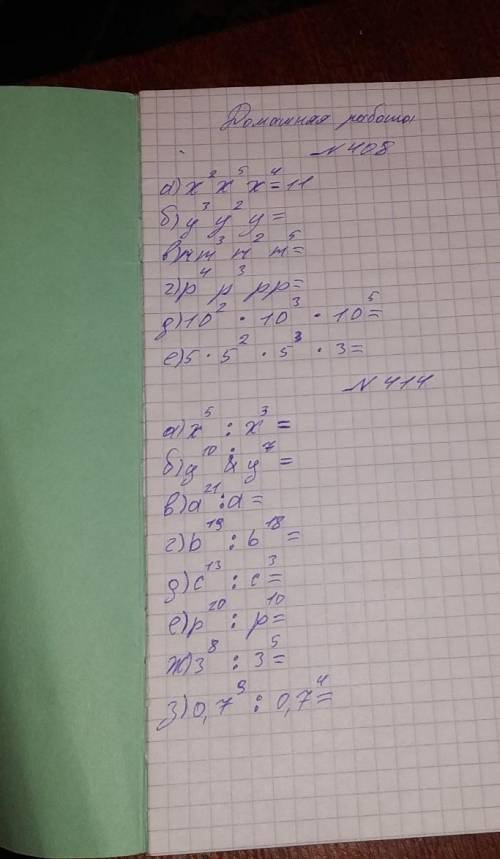 Домашняя работа
№408
а) x² x⁵ x⁴=11
б) y³ y² y=
в) m m³ m² m⁵=
г) p⁴ p³ pp=
д) 10² · 10³ · 10⁵=
е) 5 · 5² · 5³ · 3=
№414
а) x⁵ : x³ =
б) y¹⁰ : y⁷ =
в) a²¹ : a =
г) b¹⁹ : b¹⁸ =
д) c¹³ : c³=
е) p²⁰ : p¹⁰=
ж) 3⁸ : 3⁵=
з) 0,7⁹ : 0,7⁴=